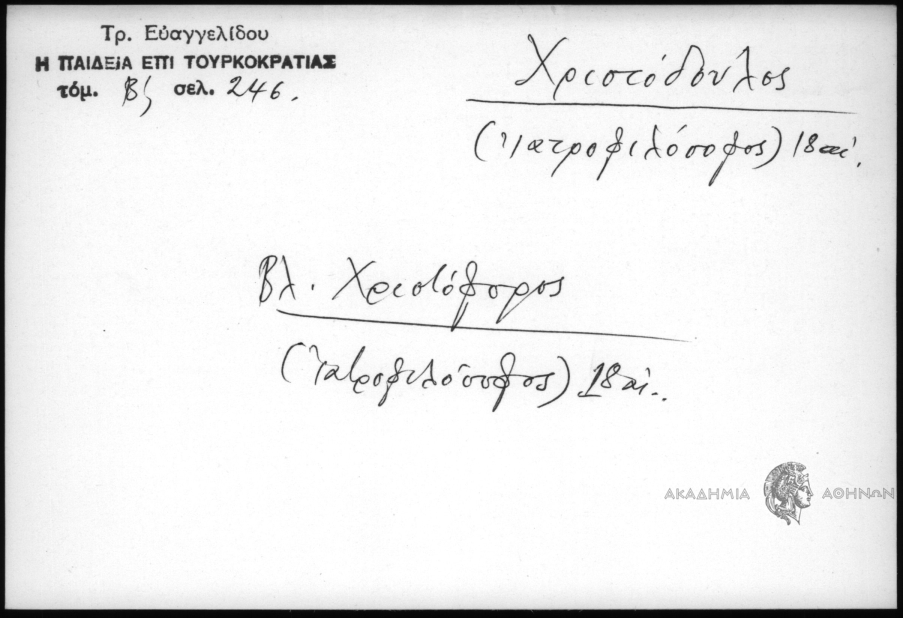 Τρ. Εὐαγγελίδου
Η ΠΑΙΔΕΙΑ ΕΠΙ ΤΟΥΡΚΟΚΡΑΤΙΑΣ
τόμ. Β΄, σελ. 246.
Χριστόδουλος
(Ἰατροφιλόσοφος) 18 αἰ.
Βλ. Χριστόφορος
(Ἰατροφιλόσοφος) 18 αἰ..
ΑΚΑΔΗΜΙΑ ΑΘΗΝΩΝ